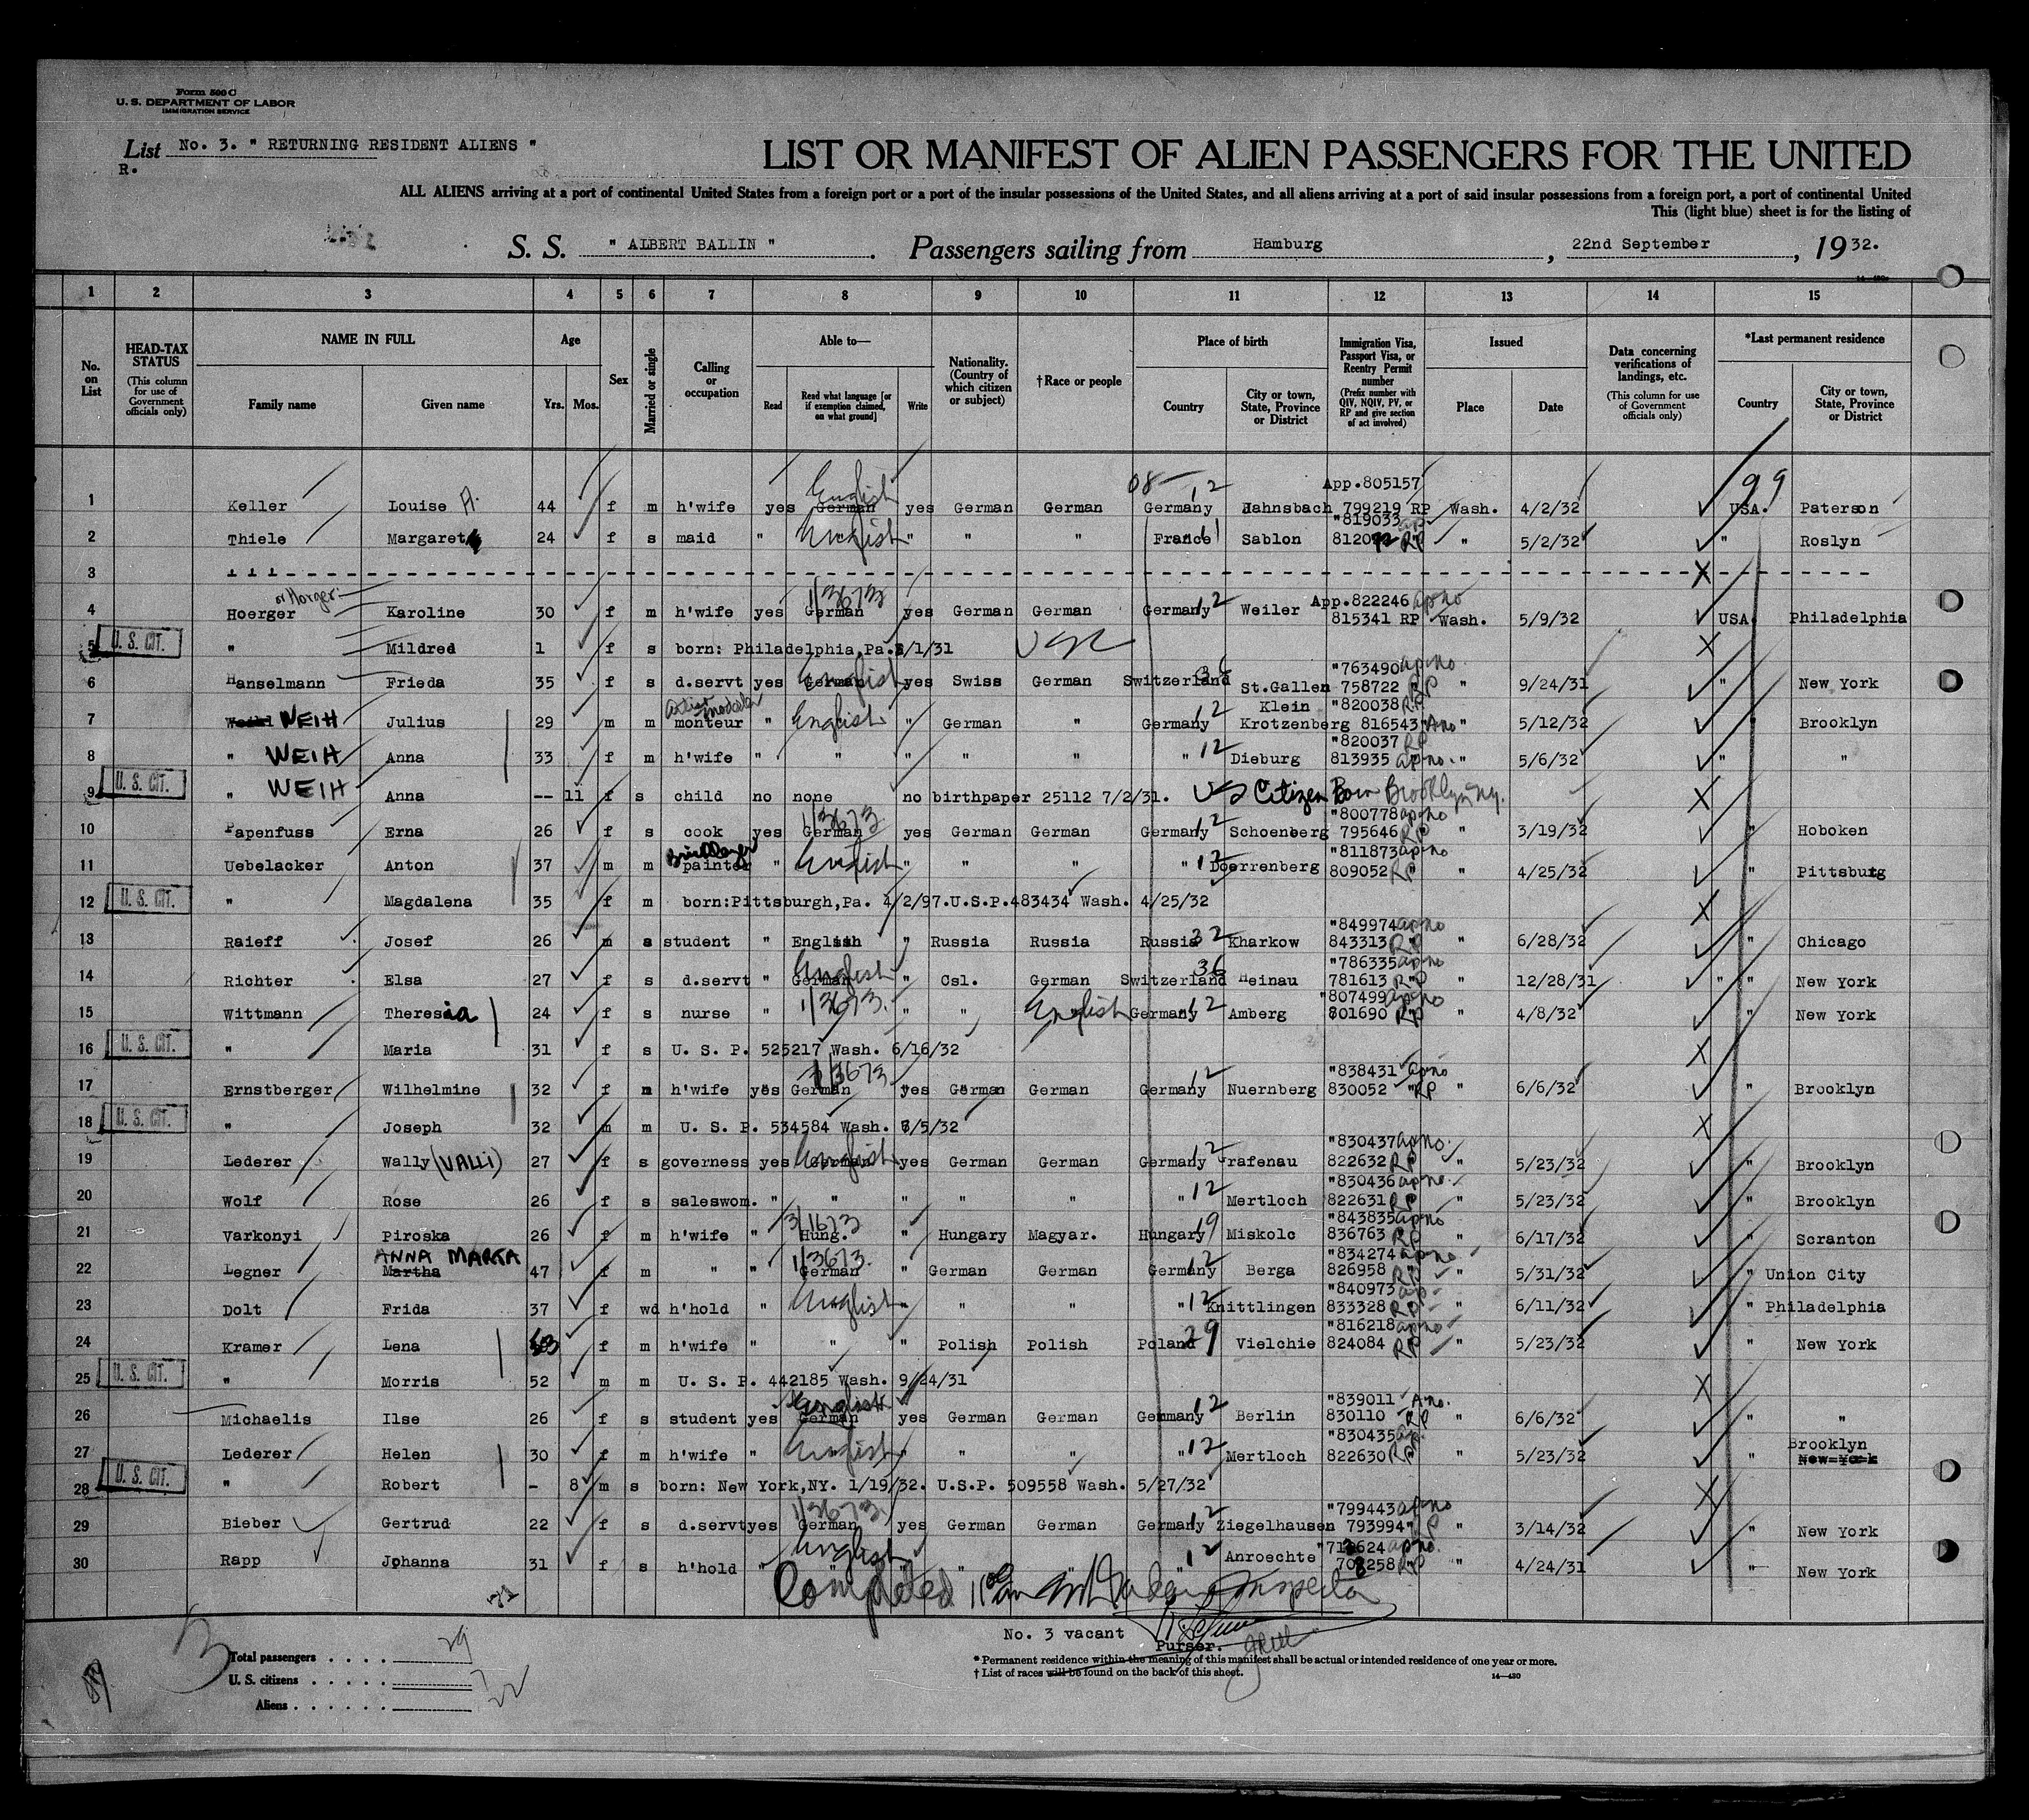 Form 500 C
U. S. DEPARTMENT OF LABOR
IMMIGRATION SERVICE
List No. 3. " RETURNING RESIDENT ALIENS "
R.
LIST OR MANIFEST OF ALIEN PASSENGERS FOR THE UNITED
ALL ALIENS arriving at a port of continental United States from a foreign port or a port of the insular possessions of the United States, and all aliens arriving at a port of said insular possessions from a foreign port, a port of continental United
This (light blue) sheet is for the listing of
S. S. " ALBERT BALLIN ". Passengers sailing from Hamburg, 22nd September, 1932.
1 2 3 4 5 6 7 8 9 10 11 12 13 14 15
No. on List
HEAD-TAX STATUS (This column for use of Government officials only)
NAME IN FULL Family name Given name
Age Yrs. Mos.
Sex
Married or single
Calling or occupation
Able to— Read Read what language [or if exemption claimed, on what ground] Write
Nationality. (Country of which citizen or subject)
†Race or people
Place of birth Country City or town, State, Province or District
Immigration Visa, Passport Visa, or Reentry Permit number (Prefix number with QIV, NQIV, PV, or RP and give section of act involved)
Issued Place Date
Data concerning verifications of landings, etc. (This column for use of Government officials only)
*Last permanent residence Country City or town, State, Province or District
1 Keller Louise A. 44 f m h'wife yes German English yes German German Germany 12 Hahnsbach App.805157 799219 RP Wash. 4/2/32 USA. 99 Paterson
2 Thiele Margaret 24 f s maid " English " " " France Sablon "819033 RP " 5/2/32 " Roslyn
3
4 Hoerger or Horger Karoline 30 f m h'wife yes German 1/3673 yes German German Germany 12 Weiler App.822246 apno 815341 RP Wash. 5/9/32 USA Philadelphia
5 U. S. CIT. " Mildred 1 f s born: Philadelphia,Pa. /1/31 USC
6 Hanselmann Frieda 35 f s d.servt yes German English yes Swiss German Switzerland St.Gallen "763490 apno 758722 RP " 9/24/31 " New York
7 WEIH Julius 29 m m monteur " English " German " Germany 12 Klein Krotzenberg "820038 RP 816543 " Ano " 5/12/32 Brooklyn
8 " WEIH Anna 33 f m h'wife " " " " " " 12 Dieburg "820037 RP 813935 apno " 5/6/32 " "
9 U. S. CIT. " WEIH Anna -- 11 f s child no none no birthpaper 25112 7/2/31. US Citizen Born Brooklyn Ny.
10 Papenfuss Erna 26 f s cook yes German 1/3673 yes German German Germany 12 Schoenberg "800778 apno 795646 RP " 3/19/32 " Hoboken
11 Uebelacker Anton 37 m m painter Bricklayer " English " " " " 12 Doerrenberg "811873 apno 809052 RP " 4/25/32 " Pittsburg
12 U. S. CIT. " Magdalena 35 f m born:Pittsburgh,Pa. 4/2/97.U.S.P.483434 Wash. 4/25/32
13 Raieff Josef 26 m s student " English " Russia Russia Russia 32 Kharkow "849974 apno 843313 RP " 6/28/32 " Chicago
14 Richter Elsa 27 f s d.servt " German English " Csl. German Switzerland 36 Heinau "786335 apno 781613 RP " 12/28/31 " " New York
15 Wittmann Theresia 24 f s nurse " 1/3673. " " English Germany 12 Amberg "807499 apno 801690 RP " 4/8/32 " New York
16 U. S. CIT. " Maria 31 f s U. S. P. 525217 Wash. 6/16/32
17 Ernstberger Wilhelmine 32 f m h'wife yes German 1/3673 yes German German Germany 12 Nuernberg "838431 apno 830052 "RP " 6/6/32 " Brooklyn
18 U. S. CIT. " Joseph 32 m m U. S. P. 534584 Wash. /5/32
19 Lederer Wally (VALLI) 27 f s governess yes German English yes German German Germany 12 Grafenau "830437 apno. 822632 RP " 5/23/32 " Brooklyn
20 Wolf Rose 26 f s saleswom. " " " " " " 12 Mertloch "830436 apno. 822631 RP " 5/23/32 " Brooklyn
21 Varkonyi Piroska 26 f m h'wife " Hung. 3/1673 " Hungary Magyar. Hungary 19 Miskolc "843835 apno 836763 RP " 6/17/32 " Scranton
22 Legner Martha ANNA MARTA 47 f m " " German 1/3673. " German German Germany 12 Berga "834274 apno 826958 RP " 5/31/32 " Union City
23 Dolt Frida 37 f wd h'hold " English " " " " 12 Knittlingen "840973 ap 833328 RP " 6/11/32 " Philadelphia
24 Kramer Lena f m h'wife " " " Polish Polish Poland 29 Vielchie "816218 apno 824084 RP " 5/23/32 " New York
25 U. S. CIT. " Morris 52 m m U. S. P. 442185 Wash. 9/24/31
26 Michaelis Ilse 26 f s student yes German English yes German German Germany 12 Berlin "839011 Ano. 830110 RP " 6/6/32 " "
27 Lederer Helen 30 f m h'wife " English " " " " 12 Mertloch "830435 ap. 822630 RP " 5/23/32 " Brooklyn New York
28 U. S. CIT. " Robert - 8 m s born: New York,NY. 1/19/32. U.S.P. 509558 Wash. 5/27/32
29 Bieber Gertrud 22 f s d.servt yes German 1/3673. yes German German Germany 12 Ziegelhausen "799443 apno 793994 " RP " 3/14/32 " New York
30 Rapp Johanna 31 f s h'hold " English " " " " 12 Anroechte apno. RP " 4/24/31 " New York
Completed Inspector
No. 3 vacant
Purser.
Total passengers . . . . 29
U. S. citizens . . . . . 7
Aliens . . . . . . 22
* Permanent residence within the meaning of this manifest shall be actual or intended residence of one year or more.
† List of races will be found on the back of this sheet.
14—430